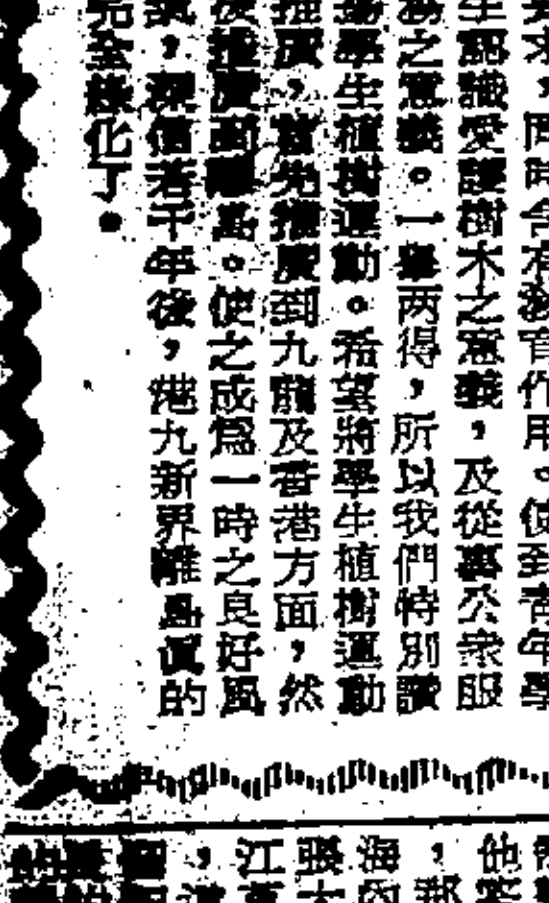 求，同時含有教育作用。使到青年學
生認識愛護樹木之意義，及從事公衆服
務之意義。一舉两得，所以我們特別讚
揚學生植樹運動。希望將學生植樹運動
推廣，首先推廣到九龍及香港方面，然
後推廣到離島。使之成爲一時之良好風
氣，深信若干年後，港九新界離島眞的
完全綠化了。
他
，
海
張
江
，